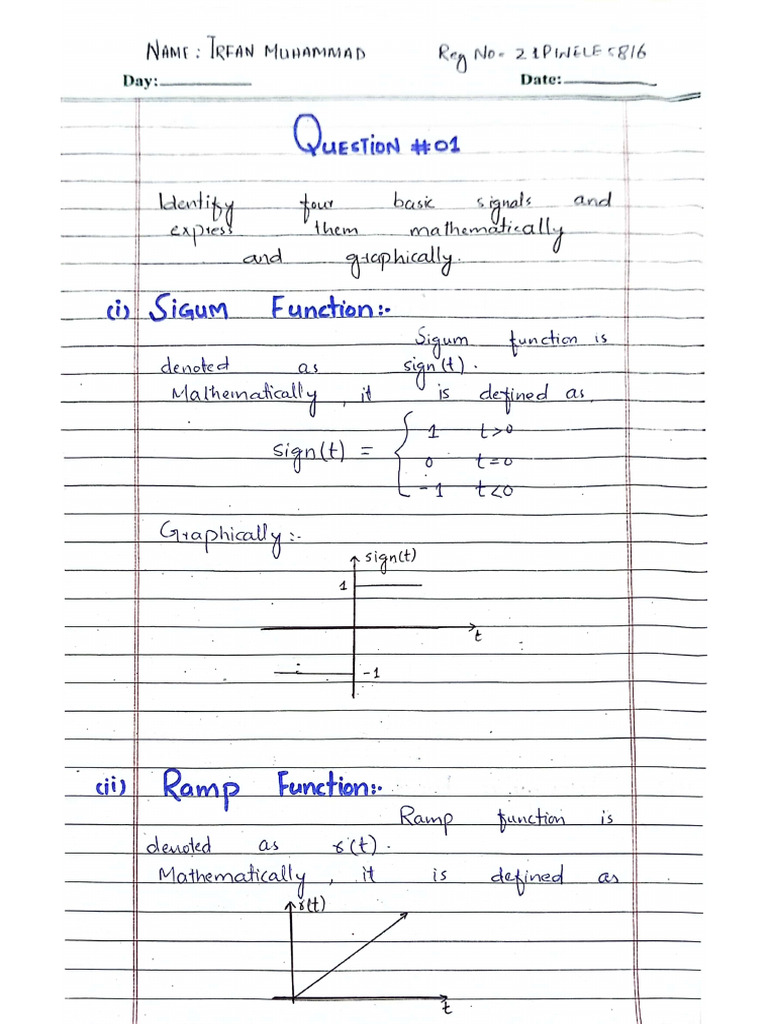 NAME: IRFAN MUHAMMAD Reg No- 21PWELE5816
Day: Date:
QUESTION #01
Identify four basic signals and
express them mathematically
and graphically.
(i) SIGUM Function:-
Sigum function is
denoted as sign(t).
Mathematically, it is defined as,
sign(t) = { 1 t>0
0 t=0
-1 t<0
Graphically:-
sign(t)
1
t
-1
(ii) Ramp Function:-
Ramp function is
denoted as r(t).
Mathematically, it is defined as
r(t)
t